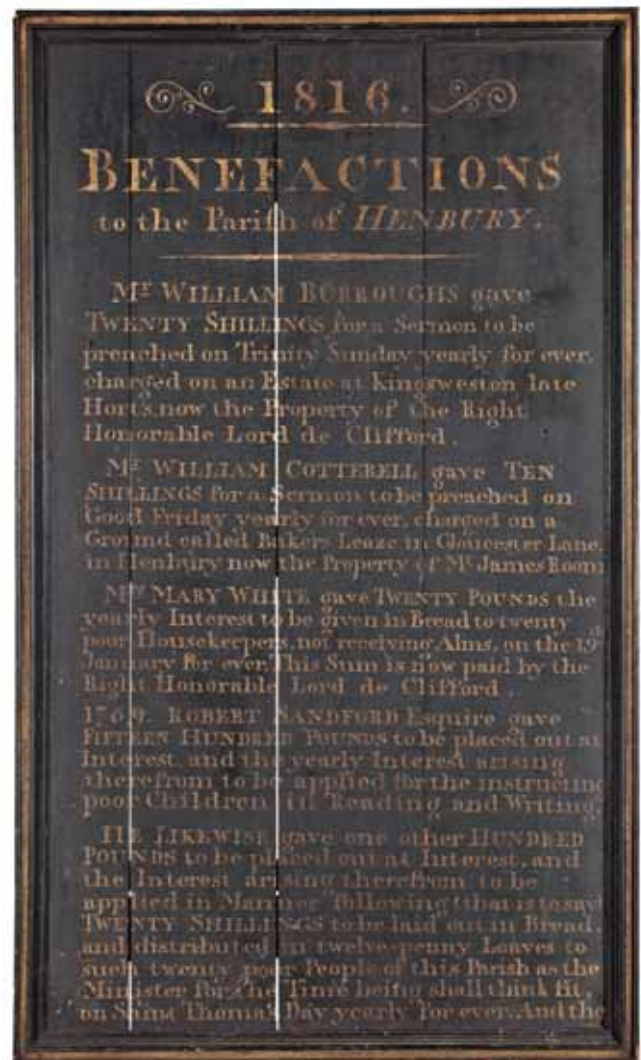 1816.
BENEFACTIONS
to the Parish of HENBURY.
Mr WILLIAM BURROUGHS gave
TWENTY SHILLINGS for a Sermon to be
preached on Trinity Sunday yearly for ever,
charged on an Estate at Kingsweston late
Hort's, now the Property of the Right
Honorable Lord de Clifford.
Mr WILLIAM COTTERELL gave TEN
SHILLINGS for a Sermon to be preached on
Good Friday yearly for ever, charged on a
Ground called Bakers Leaze in Gloucester Lane,
in Henbury now the Property of Mr James Room
MARY WHITE gave TWENTY POUNDS the
yearly Interest to be given in Bread to twenty
poor Housekeepers, not receiving Alms, on the 19th
January for ever. This Sum is now paid by the
Right Honorable Lord de Clifford.
ROBERT SANDFORD Esquire gave
FIFTEEN HUNDRED POUNDS to be placed out at
Interest, and the yearly Interest arising
therefrom to be applied for the instructing
poor Children in Reading and Writing.
HE LIKEWISE gave one other HUNDRED
POUNDS to be placed out at Interest, and
the Interest arising therefrom to be
applied in Manner following (that is to say)
TWENTY SHILLINGS to be laid out in Bread,
and distributed in twelve-penny Loaves to
such twenty poor People of this Parish as the
Minister for the Time being shall think fit,
on Saint Thomas Day yearly for ever. And the